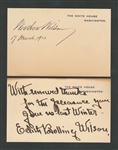 THE WHITE HOUSE
WASHINGTON
Woodrow Wilson
17 March 1913
THE WHITE HOUSE
WASHINGTON
With renewed thanks
for the pleasure you
gave us last Winter
Edith Bolling Wilson